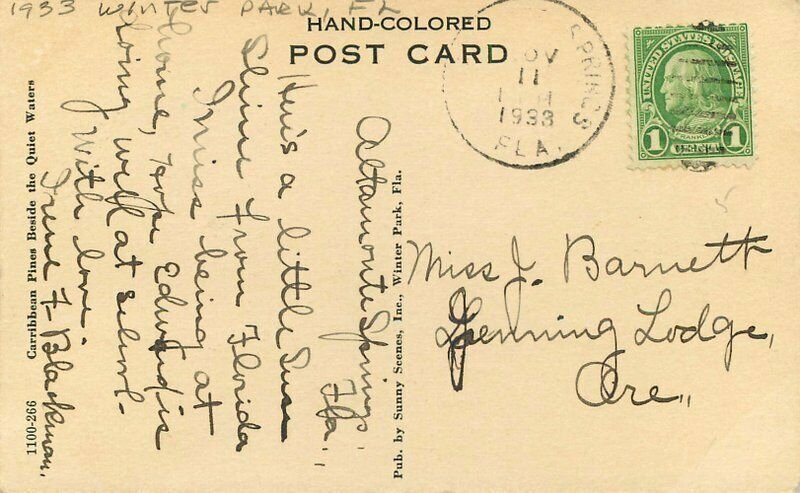 1933 WINTER PARK, FL
HAND-COLORED
POST CARD
SPRINGS
NOV
11
1933
FLA.
UNITED STATES POSTAGE
1 FRANKLIN 1
Altamonte Springs,
Fla.,
Here's a little Sun
Shine from Florida
I miss being at
home, hope Edward is
doing well at school.
With love.
Irene F. Blackman,
1100-266 Carribbean Pines Beside the Quiet Waters
Pub. by Sunny Scenes, Inc., Winter Park, Fla.
Miss J. Barnett
Lodge,
Ore.,